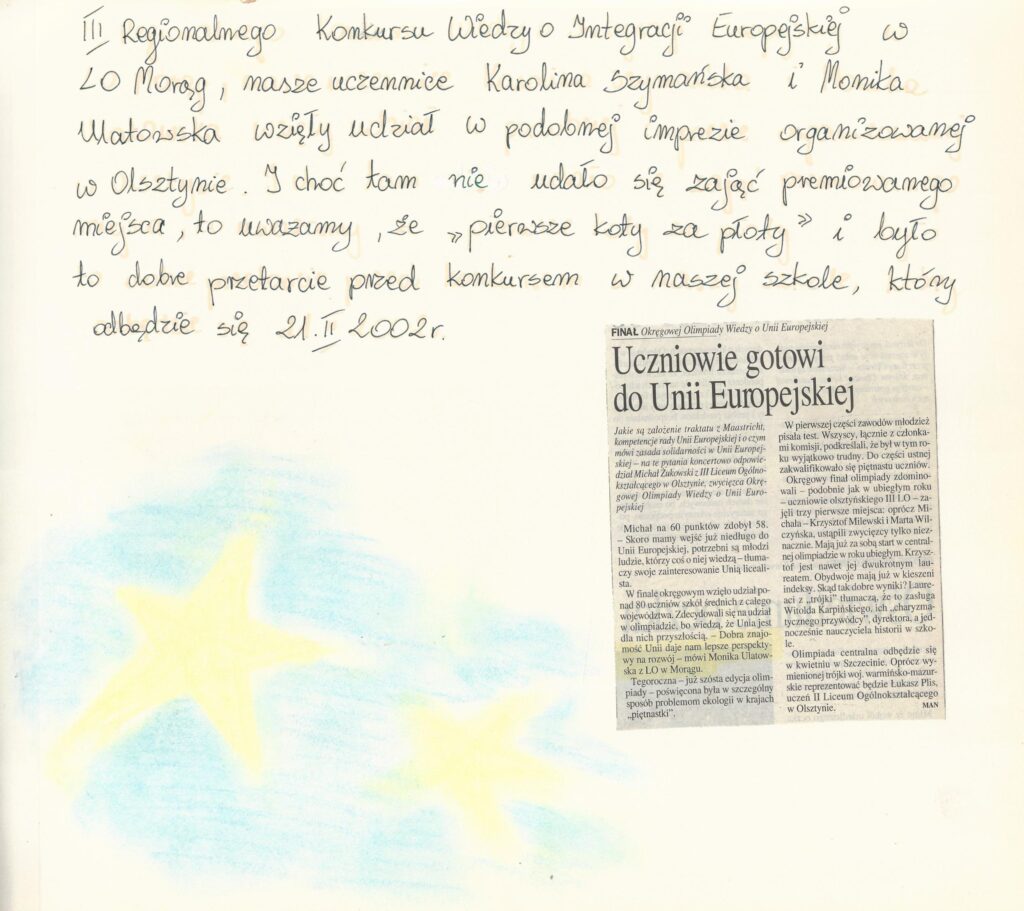 III Regionalnego Konkursu Wiedzy o Integracji Europejskiej w
LO Morąg, nasze uczennice Karolina Szymańska i Monika
Ulatowska wzięły udział w podobnej imprezie organizowanej
w Olsztynie. I choć tam nie udało się zająć premiowanego
miejsca, to uważamy, że „pierwsze koty za płoty” i było
to dobre przetarcie przed konkursem w naszej szkole, który
odbędzie się 21.II 2002r.
FINAŁ Okręgowej Olimpiady Wiedzy o Unii Europejskiej
Uczniowie gotowi
do Unii Europejskiej
Jakie są założenie traktatu z Maastricht,
kompetencje rady Unii Europejskiej i o czym
mówi zasada solidarności w Unii Europej-
skiej – na te pytania koncertowo odpowie-
dział Michał Żukowski z III Liceum Ogólno-
kształcącego w Olsztynie, zwycięzca Okrę-
gowej Olimpiady Wiedzy o Unii Euro-
pejskiej
Michał na 60 punktów zdobył 58.
– Skoro mamy wejść już niedługo do
Unii Europejskiej, potrzebni są młodzi
ludzie, którzy coś o niej wiedzą – tłuma-
czy swoje zainteresowanie Unią liceali-
sta.
W finale okręgowym wzięło udział po-
nad 80 uczniów szkół średnich z całego
województwa. Zdecydowali się na udział
w olimpiadzie, bo wiedzą, że Unia jest
dla nich przyszłością. – Dobra znajo-
mość Unii daje nam lepsze perspekty-
wy na rozwój – mówi Monika Ulatow-
ska z LO w Morągu.
Tegoroczna – już szósta edycja olim-
piady – poświęcona była w szczególny
sposób problemom ekologii w krajach
„piętnastki”.
W pierwszej części zawodów młodzież
pisała test. Wszyscy, łącznie z członka-
mi komisji, podkreślali, że był w tym ro-
ku wyjątkowo trudny. Do części ustnej
zakwalifikowało się piętnastu uczniów.
Okręgowy finał olimpiady zdomino-
wali – podobnie jak w ubiegłym roku
– uczniowie olsztyńskiego III LO – za-
jęli trzy pierwsze miejsca: oprócz Mi-
chała – Krzysztof Milewski i Marta Wil-
czyńska, ustąpili zwycięzcy tylko niez-
nacznie. Mają już za sobą start w central-
nej olimpiadzie w roku ubiegłym. Krzysz-
tof jest nawet jej dwukrotnym lau-
reatem. Obydwoje mają już w kieszeni
indeksy. Skąd tak dobre wyniki? Laure-
aci z „trójki” tłumaczą, że to zasługa
Witolda Karpińskiego, ich „charyzma-
tycznego przywódcy”, dyrektora, a jed-
nocześnie nauczyciela historii w szko-
le.
Olimpiada centralna odbędzie się
w kwietniu w Szczecinie. Oprócz wy-
mienionej trójki woj. warmińsko-mazur-
skie reprezentować będzie Łukasz Plis,
uczeń II Liceum Ogólnokształcącego
w Olsztynie.
MAN